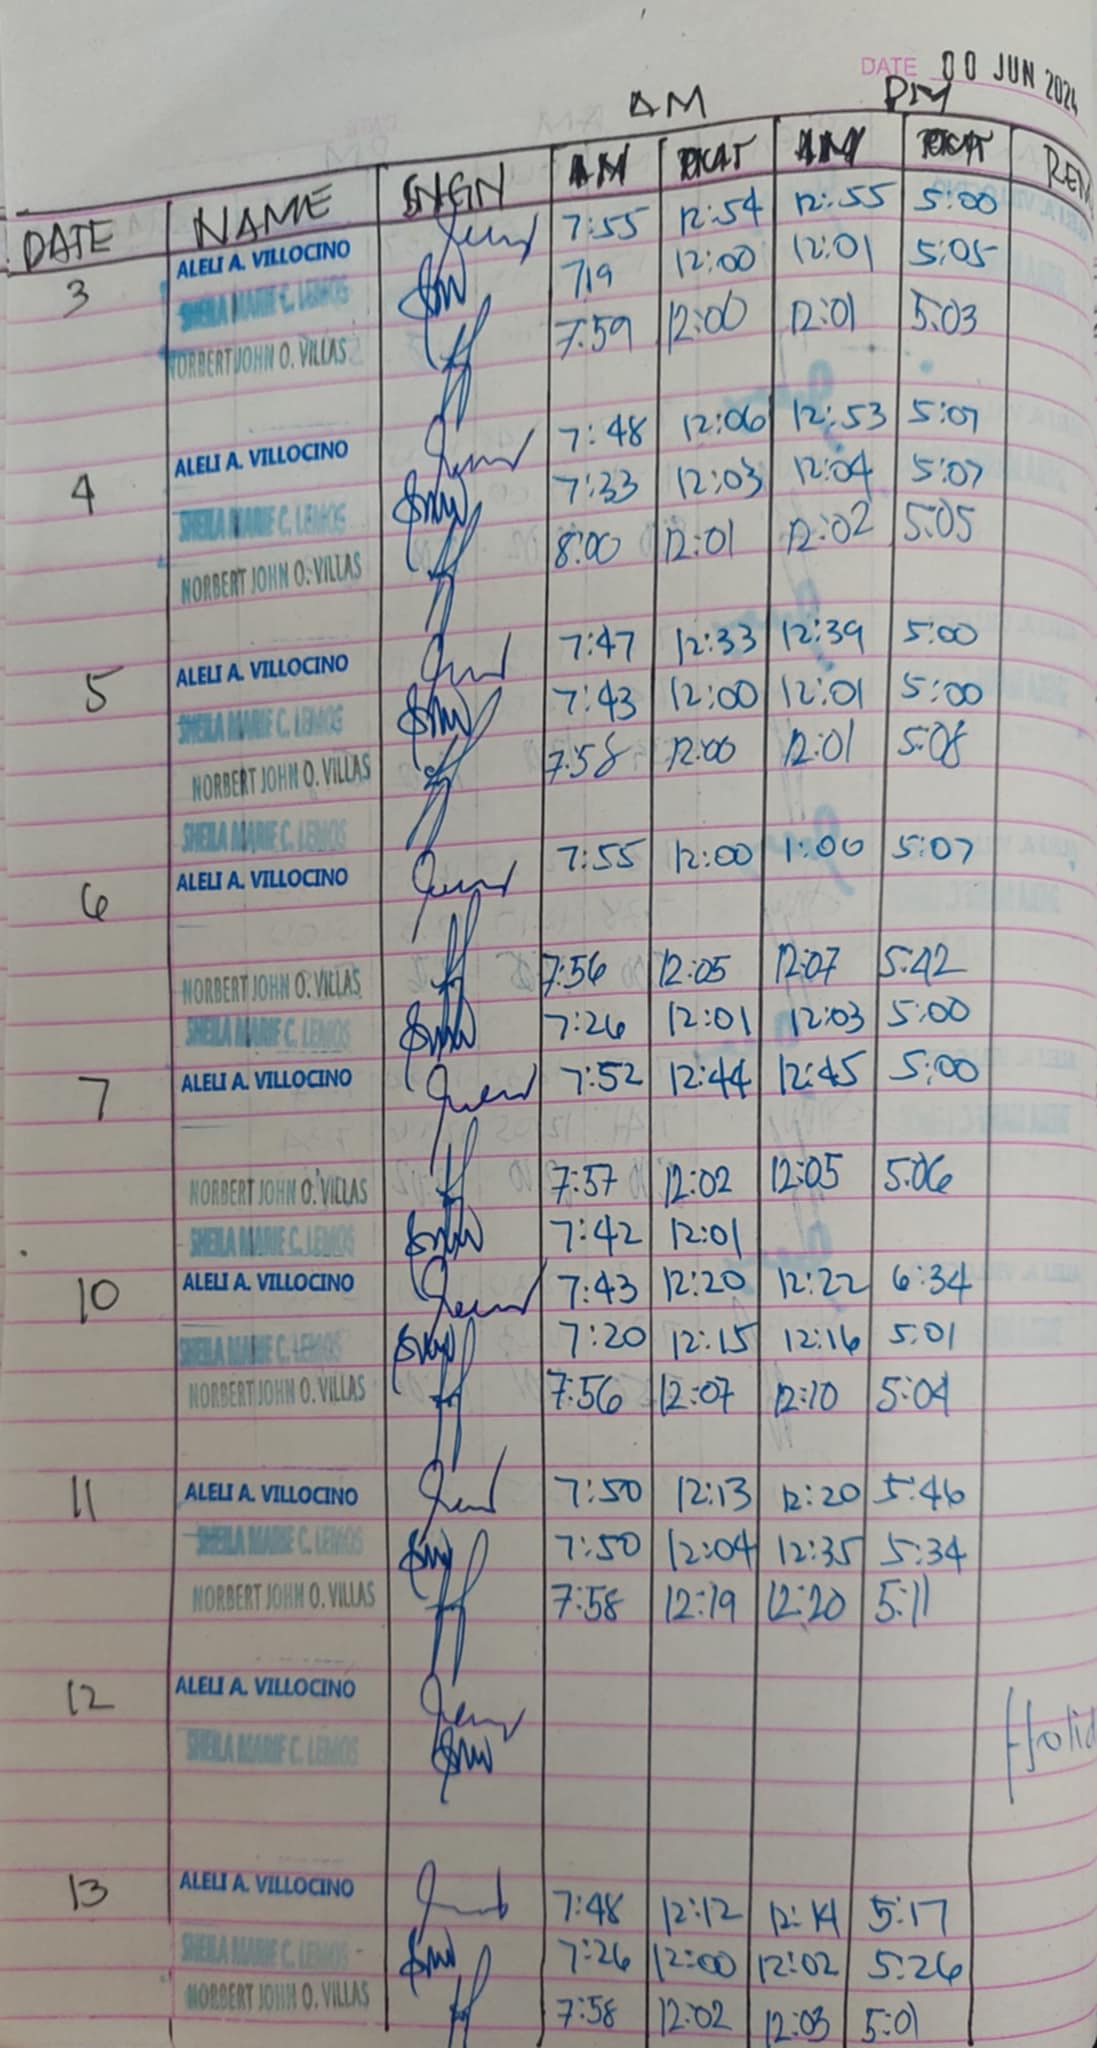 DATE 00 JUN 2024
AM PM
DATE NAME SIGN AM AM
ALELI A. VILLOCINO 7:55 12:54 12:55 5:00
3 SHEILA MARIE C. LEMOS 7:19 12:00 12:01 5:05
NORBERT JOHN O. VILLAS 7:59 12:00 12:01 5:03
ALELI A. VILLOCINO 7:48 12:06 12:53 5:07
4 SHEILA MARIE C. LEMOS 7:33 12:03 12:04 5:07
NORBERT JOHN O. VILLAS 8:00 12:01 12:02 5:05
5 ALELI A. VILLOCINO 7:47 12:33 12:39 5:00
SHEILA MARIE C. LEMOS 7:43 12:00 12:01 5:00
NORBERT JOHN O. VILLAS 7:58 12:00 12:01 5:08
SHEILA MARIE C. LEMOS
6 ALELI A. VILLOCINO 7:55 12:00 1:00 5:07
NORBERT JOHN O. VILLAS 7:56 12:05 12:07 5:42
SHEILA MARIE C. LEMOS 7:26 12:01 12:03 5:00
7 ALELI A. VILLOCINO 7:52 12:44 12:45 5:00
NORBERT JOHN O. VILLAS 7:57 12:02 12:05 5:06
SHEILA MARIE C. LEMOS 7:42 12:01
10 ALELI A. VILLOCINO 7:43 12:20 12:22 6:34
SHEILA MARIE C. LEMOS 7:20 12:15 12:16 5:01
NORBERT JOHN O. VILLAS 7:56 12:07 12:10 5:04
11 ALELI A. VILLOCINO 7:50 12:13 12:20 5:46
SHEILA MARIE C. LEMOS 7:50 12:04 12:35 5:34
NORBERT JOHN O. VILLAS 7:58 12:19 12:20 5:11
12 ALELI A. VILLOCINO
SHEILA MARIE C. LEMOS Holid
13 ALELI A. VILLOCINO 7:48 12:12 12:14 5:17
SHEILA MARIE C. LEMOS 7:26 12:00 12:02 5:26
NORBERT JOHN O. VILLAS 7:58 12:02 12:03 5:01